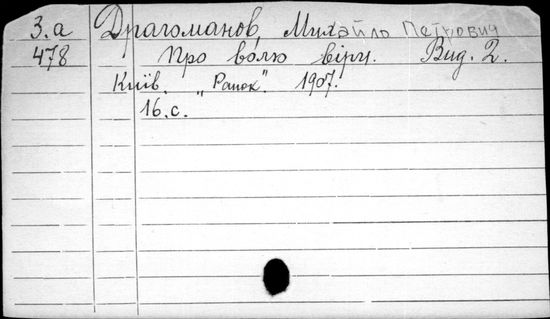 З.а Драгоманов, Михайло Петрович
478 Про волю віри. Вид. 2.
Київ. „Ранок". 1907.
16.с.